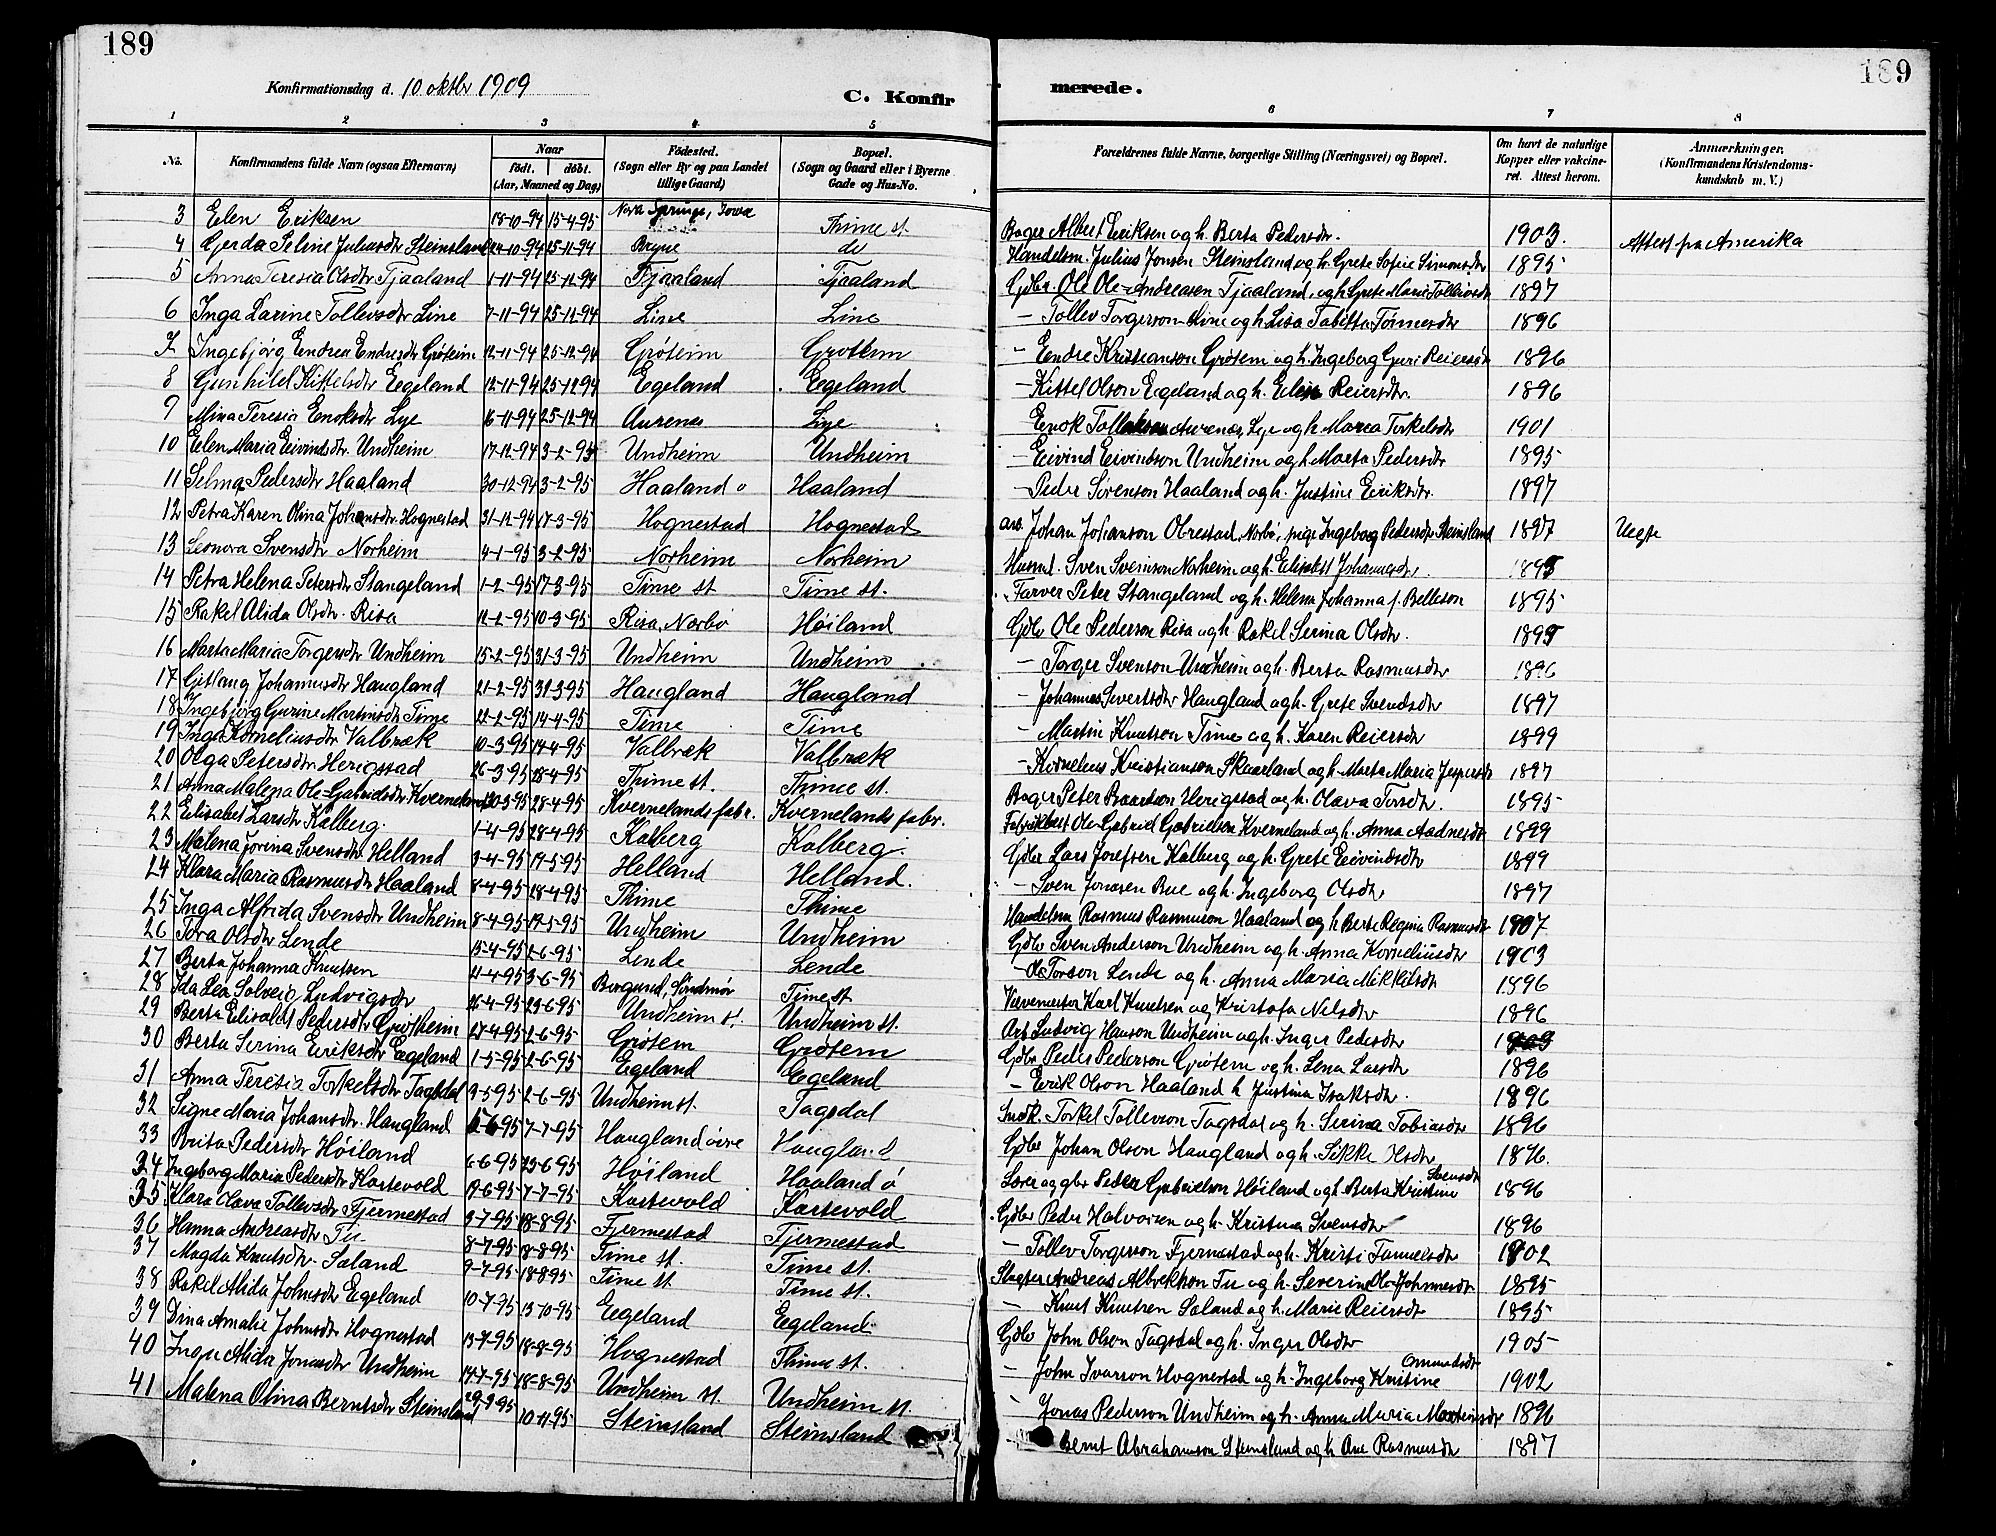 189
189
Konfirmationsdag d. 10 oktbr 1909
C. Konfirmerede.
1 2 3 4 5 6 7 8
No. Konfirmandens fulde Navn (ogsaa Efternavn) Naar født. døbt. (Aar, Maaned og Dag) Fødested. (Sogn eller By og paa Landet tillige Gaard) Bopæl. (Sogn og Gaard eller i Byerne Gade og Hus-No. Forældrenes fulde Navne, borgerlige Stilling (Næringsvei) og Bopæl. Om havt de naturlige Kopper eller vakcineret. Attest herom. Anmærkninger. (Konfirmandens Kristendomskundskab m. V.)
3 Elen Eriksen 18-10-94 15-4-95 Nora Springs, Iowa Thime st. Bager Albert Eriksen og h. Berta Pedersdtr. 1903. Attest fra Amerika
4 Gerda Seline Juliusdtr Steinsland 24-10-94 25-11-94 Bryne do Handelsm. Julius Jonsen Steinsland og h. Grete Sofie Simonsdtr 1895
5 Anna Teresia Olsdtr Tjaaland 1-11-94 25-12-94 Tjaaland Tjaaland Gdbr Ole Ole-Andreasen Tjaaland, og h. Grete Marie Tollevsdtr 1897
6 Inga Larine Tollevsdtr Line 7-11-94 25-12-94 Line Line - Tollev Torgerson Line og h. Lisa Tabitta Tønnesdtr 1896
7 Ingebjørg Endrea Endresdtr Grøteim 12-11-94 25-12-94 Grøteim Grøteim - Endre Kristianson Grøtem og h. Ingeborg Guri Reiersdtr 1896
8 Gunhild Kittelsdtr Egeland 12-11-94 25-12-94 Egeland Egeland - Kittel Olson Egeland og h. Elen Reiersdtr. 1896
9 Mina Teresia Enoksdtr Lye 16-11-94 25-12-94 Aurenes Lye - Enok Tollakson Aurenes, Lye og h. Marea Torkelsdtr 1901
10 Elen Maria Eivindsdtr Undheim 17-12-94 3-2-95 Undheim Undheim - Eivind Eivindson Undheim og h. Marta Pedersdtr 1895
11 Selma Pedersdtr Haaland 30-12-94 3-2-95 Haaland ø Haaland - Peder Sørenson Haaland og h. Justine Eriksdtr. 1897
12 Petra Karen Olina Johansdtr. Hognestad 31-12-94 17-3-95 Hognestad Hognestad arb. Johan Johanson Obrestad, Norbø, pige Ingeborg Pedersdtr Steinsland 1897 Uegte
13 Leonora Svensdtr Norheim 4-1-95 3-2-95 Norheim Norheim Husmd. Sven Sveinson Norheim og h. Elisabet Johannesdtr. 1895
14 Petra Helena Petersdtr Stangeland 1-2-95 17-3-95 Time st Time st. Farver Peter Stangeland og h. Helena Johanna f. Belleson 1895
15 Rakel Alida Olsdtr. Risa 12-2-95 10-3-95 Risa, Norbø Høiland Gdbr Ole Pederson Risa og h. Rakel Serina Olsdtr. 1895
16 Marta Maria Torgersdtr Undheim 15-2-95 31-3-95 Undheim Undheim - Torger Svenson Undheim og h. Berta Rasmusdtr 1896
17 Gitlaug Johannesdtr Haugland 21-2-95 31-3-95 Haugland Haugland - Johannes Sivertsdtr Haugland og h. Grete Svendsdtr 1897
18 Ingebjørg Gurine Martinsdtr Time 22-2-95 14-4-95 Time Time - Martin Knutson Time og h. Karen Reiersdtr 1899
19 Inga Korneliusdtr Valbræk 10-3-95 14-4-95 Valbræk Valbræk - Kornelius Kristianson Skaarland og h. Marta Maria Jespersdtr 1897
20 Olga Petersdtr Herigstad 26-3-95 18-4-95 Thime st. Thime st. Bager Peter Baardsen Herigstad og h. Olava Torsdtr. 1895
21 Anna Malena Ole-Gabrielsdtr Kverneland 20-3-95 28-4-95 Kvernelands fabr. Kvernelands fabr. Fabrikbest Ole Gabriel Gabrielsen Kverneland og h. Anna Aadnesdtr 1899
22 Elisabet Larsdtr Kalberg. 1-4-95 28-4-95 Kalberg Kalberg. Gdbr Lars Josefsen Kalberg og h. Grete Eivindsdtr 1899
23 Malena Jorina Svensdtr Helland 3-4-95 19-5-95 Helland Helland. - Sven Jonasen Bue og h. Ingeborg Olsdtr 1897
24 Klara Maria Rasmusdtr Haaland 8-4-95 28-4-95 Thime Thime Handelsm Rasmus Rasmuson Haaland og h Berte Regina Rasmusdtr 1907
25 Inga Alfrida Svensdtr Undheim 8-4-95 19-5-95 Undheim Undheim Gdbr Sven Anderson Undheim og h. Anna Korneliusdtr 1903
26 Tora Olsdtr Lende 15-4-95 2-6-95 Lende Lende - Ole Torson Lende og h. Anna Maria Mikkelsdtr 1896
27 Berta Johanna Knutsen 21-4-95 3-6-95 Borgund, Søndmør Time st Vævemester Karl Knutsen og Kristofa Nilsdtr 1896
28 Ida Lea Solveig Ludvigsdtr 26-4-95 23-6-95 Undheim st. Undheim st. Arb Ludvig Hanson Undheim og h. Inger Pedersdtr
29 Berta Elisabet Pedersdtr Grøtheim 27-4-95 2-6-95 Grøtem Grøtem Gdbr Peder Pederson Grøtem og h. Lena Larsdtr 1896
30 Berta Serina Eriksdtr Egeland 1-5-95 2-6-95 Egeland Egeland - Erik Olson Haaland h Justina Isaksdtr. 1896
31 Anna Teresia Torkelsdtr Tagsdal 3-5-95 2-6-95 Undheim st. Tagsdal Snedk. Torkel Tollevson Tagsdal og h. Serina Tobiasdtr 1896
32 Signe Maria Johansdtr. Haugland 5-6-95 7-7-95 Haugland øvre Haugland Gdbr Johan Olson Haugland og h. Sikke Olsdtr 1896.
33 Brita Pedersdtr Høiland 6-6-95 23-6-95 Høiland Haaland ø Lærer og gbr Peder Gabrielson Høiland og h. Berta Kristine Svensdtr 1896
34 Ingeborg Maria Pedersdtr Kartevold 19-6-95 7-7-95 Kartevold Kartevold Gdbr Peder Halvorsen og h. Kristina Svensdtr 1896
35 Klara Olava Tollevsdtr Fjermestad 3-7-95 18-8-95 Fjermestad Fjermestad - Tollev Torgerson Fjermestad og h. Kristi Samuelsdtr 1902
36 Hanna Andreasdtr Tu 8-7-95 18-8-95 Time st. Time st. Slagter Andreas Albrektson Tu og h. Severine Ole-Johannesdtr 1895
37 Magda Knutsdtr. Saland 9-7-95 18-8-95 Time st Time st. - Knut Knutsen Saland og h. Marie Reiersdtr 1895
38 Rakel Alida Johnsdtr Egeland 10-7-95 13-10-95 Egeland Egeland. Gdbr John Olson Tagsdal og h. Inger Olsdtr 1905
39 Dina Amalie Johnsdtr Hognestad 13-7-95 18-8-95 Hognestad Thime st. - John Ivarson Hognestad og h. Ingeborg Kristine Ommundsdtr 1902
40 Inga Alida Jonasdtr Undheim 14-7-95 18-8-95 Undheim st. Undheim st. - Jonas Pederson Undheim og h. Anna Maria Martinsdtr 1896
41 Malena Olina Berntsdtr Steinsland 29-9-95 10-11-95 Steinsland Steinsland - Bernt Abrahamson Steinsland og h Ane Rasmusdtr 1897